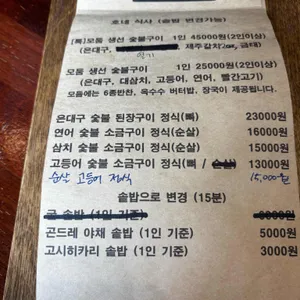 호네 식사 (솥밥 변경가능)
[특]모둠 생선 숯불구이 1인 45000원(2인이상)
(은대구, 제주갈치2pc, 금태)
모둠 생선 숯불구이 1인 25000원(2인이상)
(은대구, 대삼치, 고등어, 연어, 빨간고기)
모둠에는 6종반찬, 옥수수 버터밥, 장국이 제공됩니다.
은대구 숯불 된장구이 정식(뼈) 23000원
연어 숯불 소금구이 정식(순살) 16000원
삼치 숯불 소금구이 정식(순살) 15000원
고등어 숯불 소금구이 정식(뼈 / 순살) 13000원
순살 고등어 정식 15,000원
솥밥으로 변경 (15분)
굴 솥밥 (1인 기준) 8000원
곤드레 야채 솥밥 (1인 기준) 5000원
고시히카리 솥밥 (1인 기준) 3000원